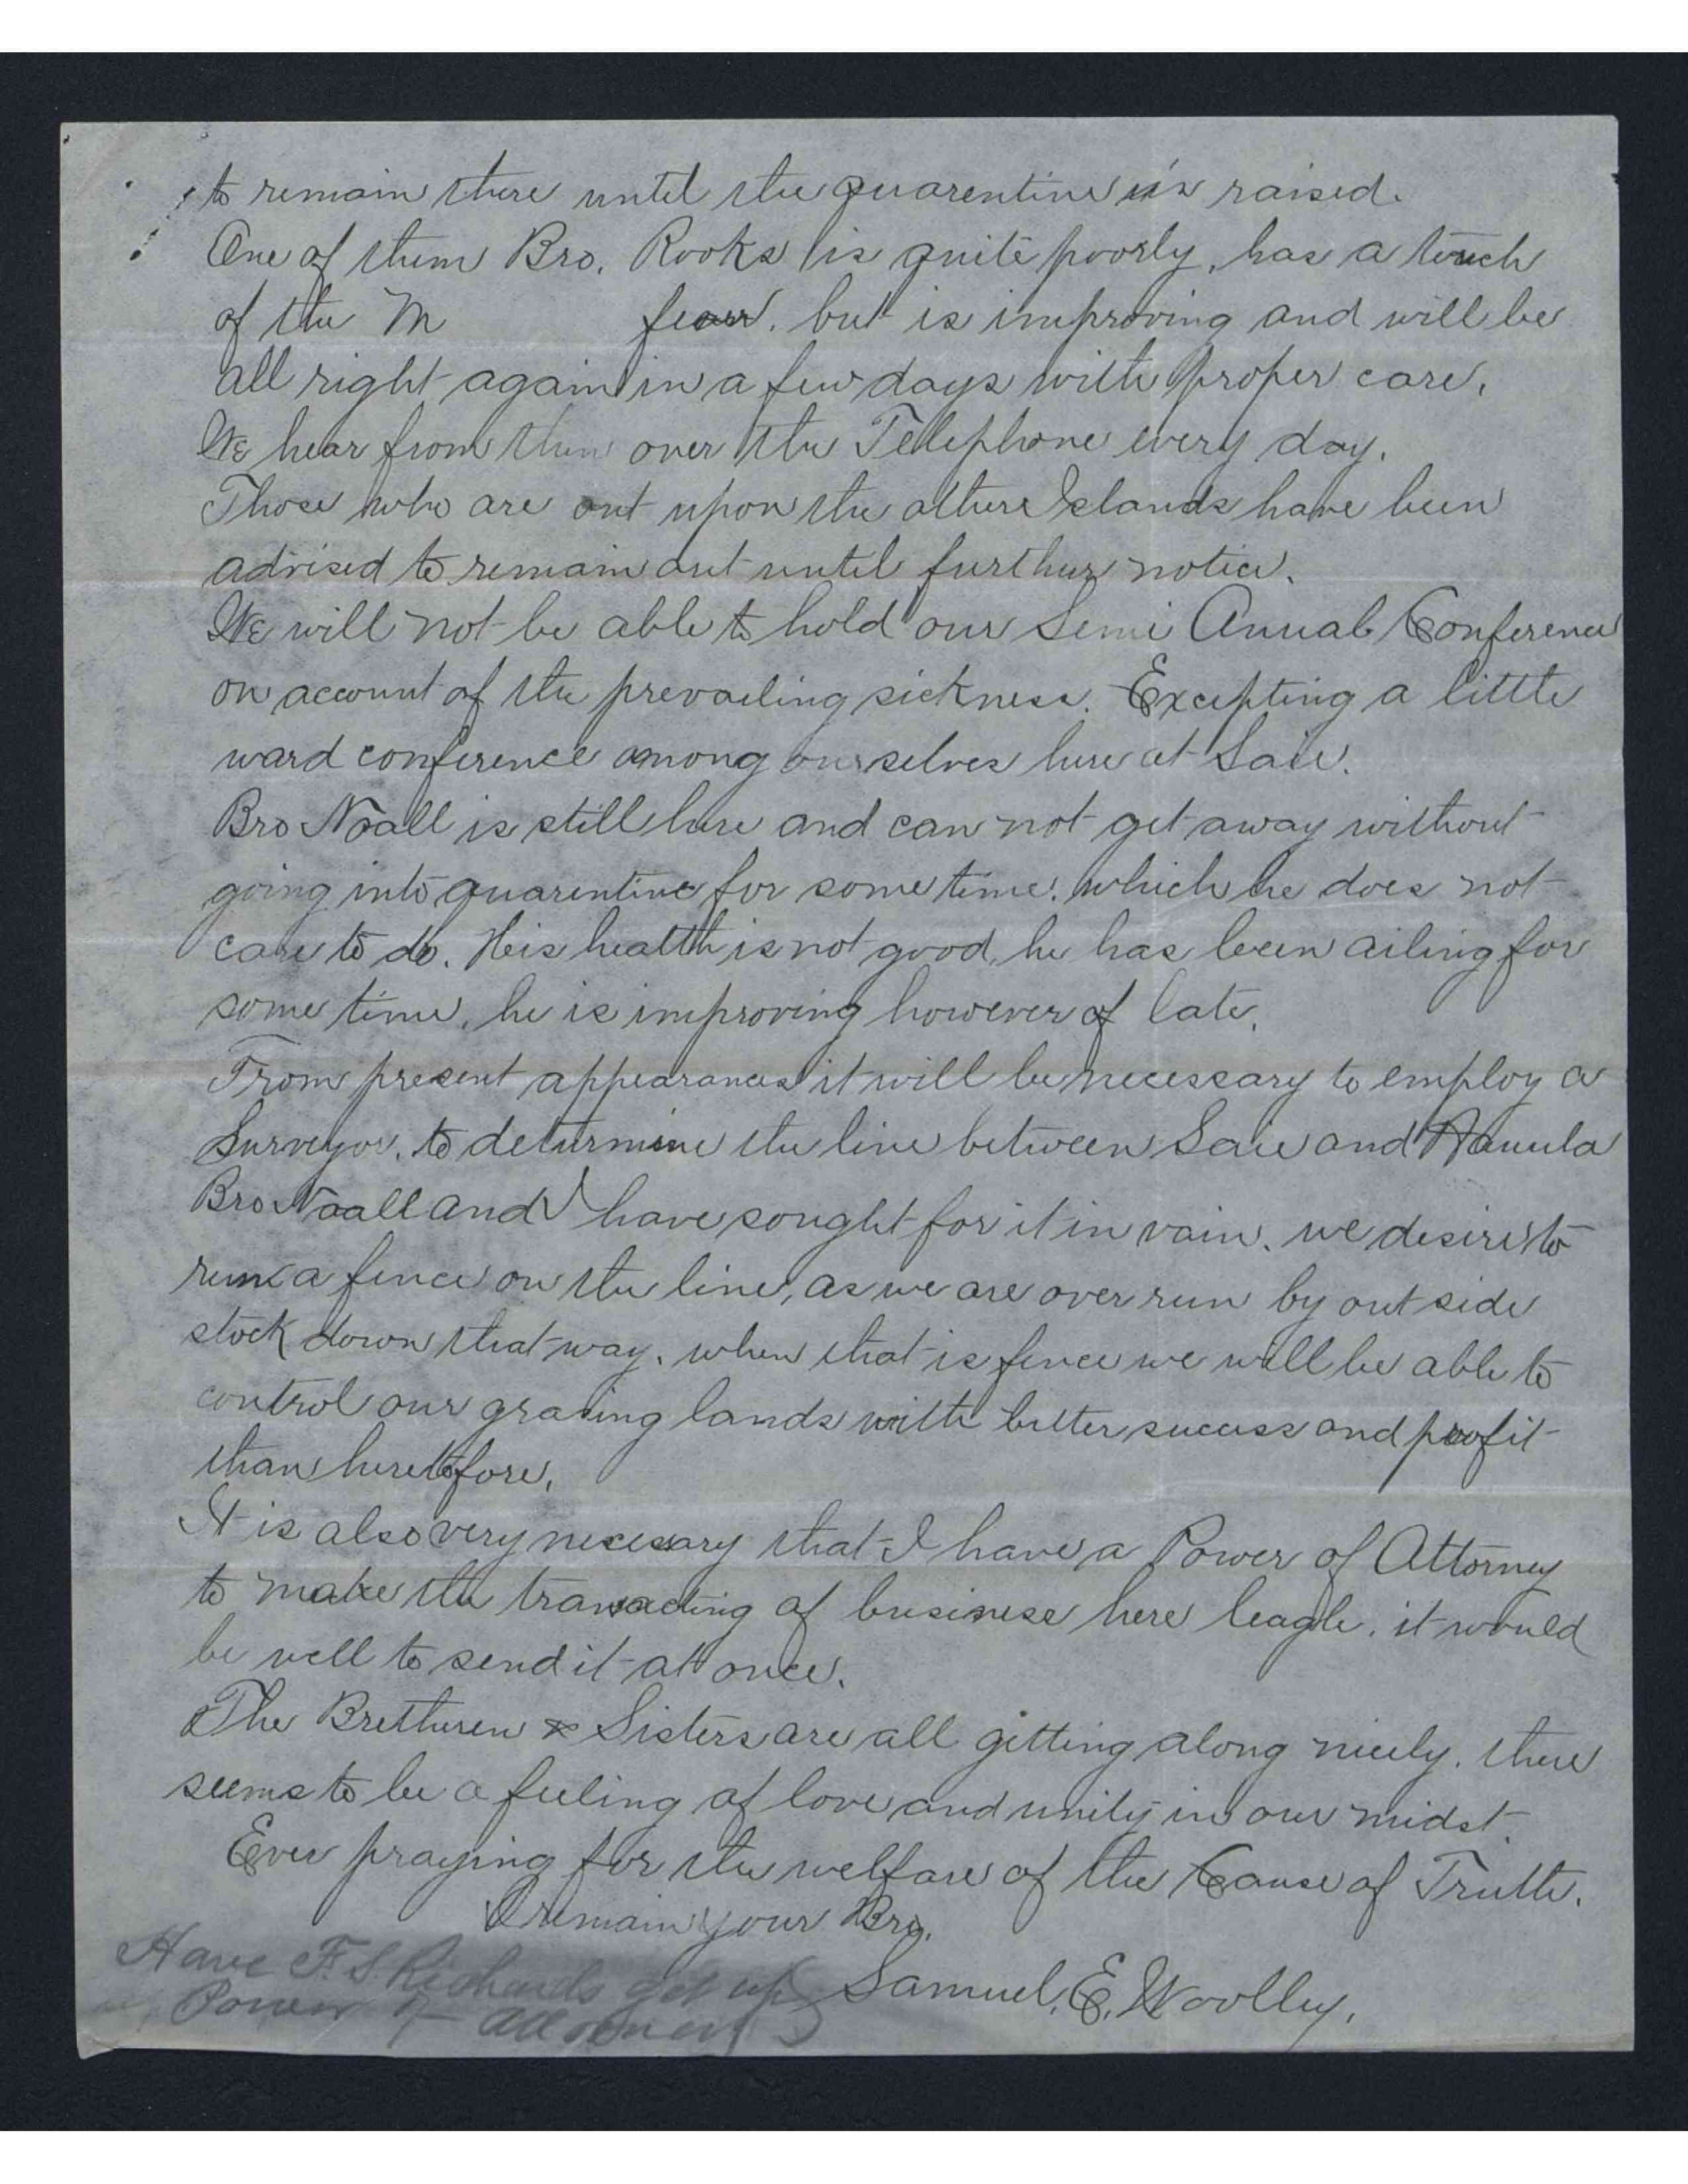 to remain there until the quarentine is raised.
One of them Bro. Rooks is quite poorly, has a touch
of the M fever. but is improving and will be
all right again in a few days with proper care,
We hear from them over the Telephone every day.
Those who are out upon the other Islands have been
advised to remain out until further notice.
We will not be able to hold our Semi Annual Conference
on account of the prevailing sickness. Excepting a little
ward conference among ourselves here at Laie.
Bro Noall is still here and can not get away without
going into quarentine for some time. which he does not
care to do. His health is not good, he has been ailing for
some time, he is improving however of late.
From present appearances it will be necessary to employ a
Surveyor. to determine the line between Laie and Hauula
Bro Noall and I have sought for it in vain. we desire to
run a fence on the line, as we are over run by out side
stock down that way. when that is fence we will be able to
control our grasing lands with better success and profit
than heretofore.
It is also very necessary that I have a Power of Attorney
to make the transacting of business here leagle. it would
be well to send it at once.
The Bretheren & Sisters are all gitting along nicely. there
seems to be a feeling of love and unity in our midst.
Ever praying for the welfare of the Cause of Truth.
I remain your Bro.
Samuel. E. Woolley.
Have F. S. Richards get up
Power of Attorney